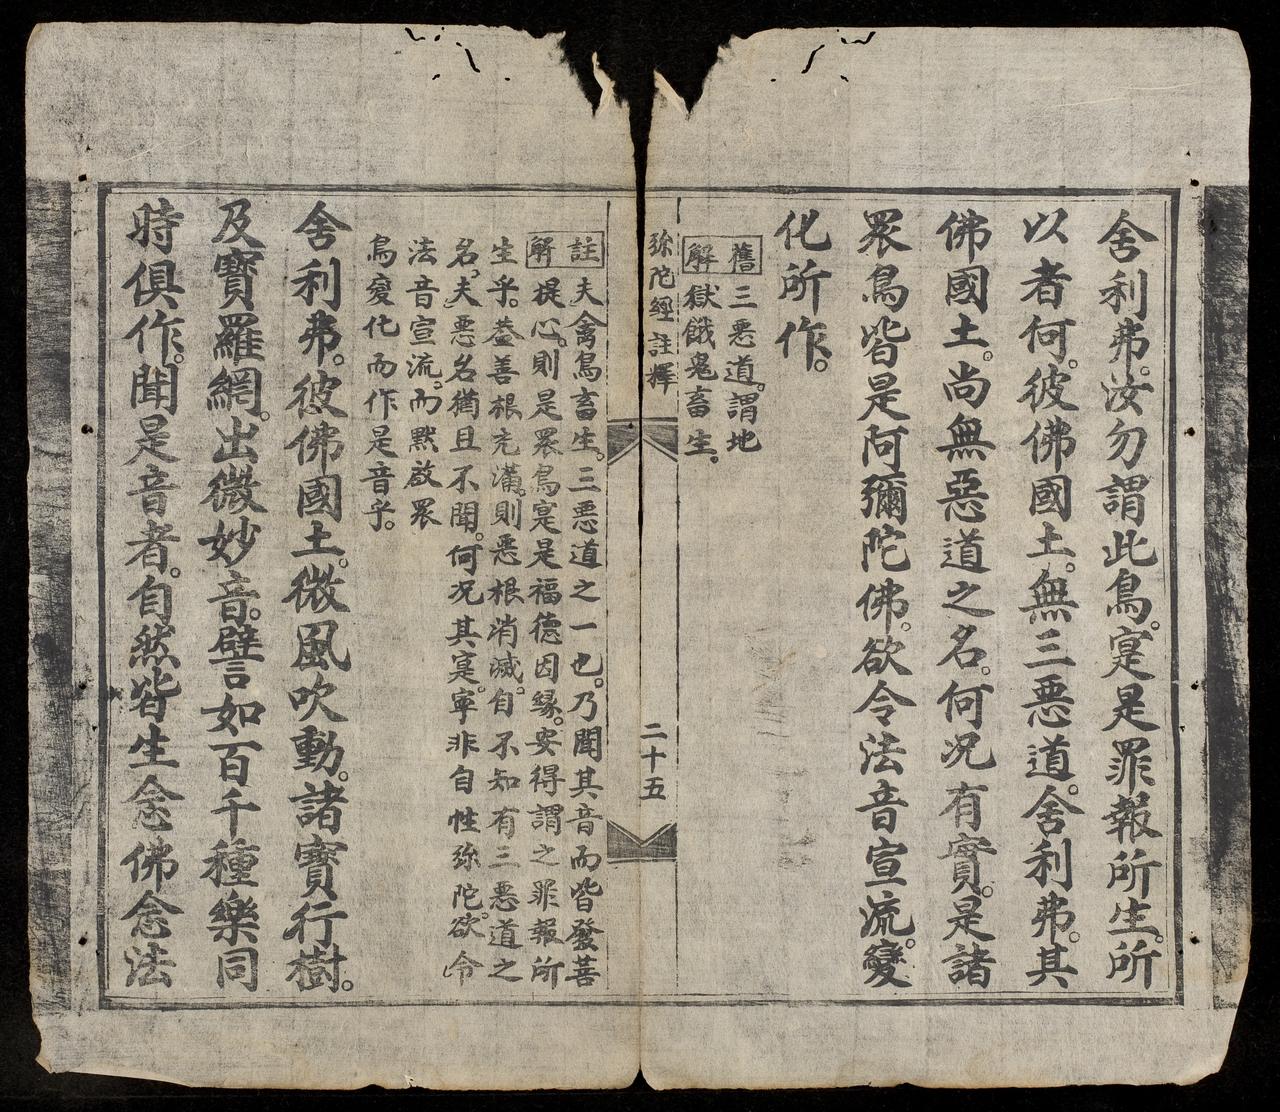 舍利弗。汝勿謂此鳥。寔是罪報所生。所
以者何。彼佛國土。無三惡道。舍利弗。其
佛國土。尚無惡道之名。何况有實。是諸
眾鳥。皆是阿彌陀佛。欲令法音宣流。變
化所作。
舊三惡道。謂地
解獄餓鬼畜生。
弥陀經註釋
二十五
註夫禽鳥畜生。三惡道之一也。乃聞其音而皆發菩
解提心。則是眾鳥寔是福德因緣。安得謂之罪報所
生乎。葢善根充滿。則惡根消滅。自不知有三惡道之
名。夫惡名猶且不聞。何况其寔。寧非自性弥陀。欲令
法音宣流。而黙啟眾
鳥變化而作是音乎。
舍利弗。彼佛國土。微風吹動。諸寶行樹。
及寶羅網。出微妙音。譬如百千種樂同
時俱作。聞是音者。自然皆生念佛念法